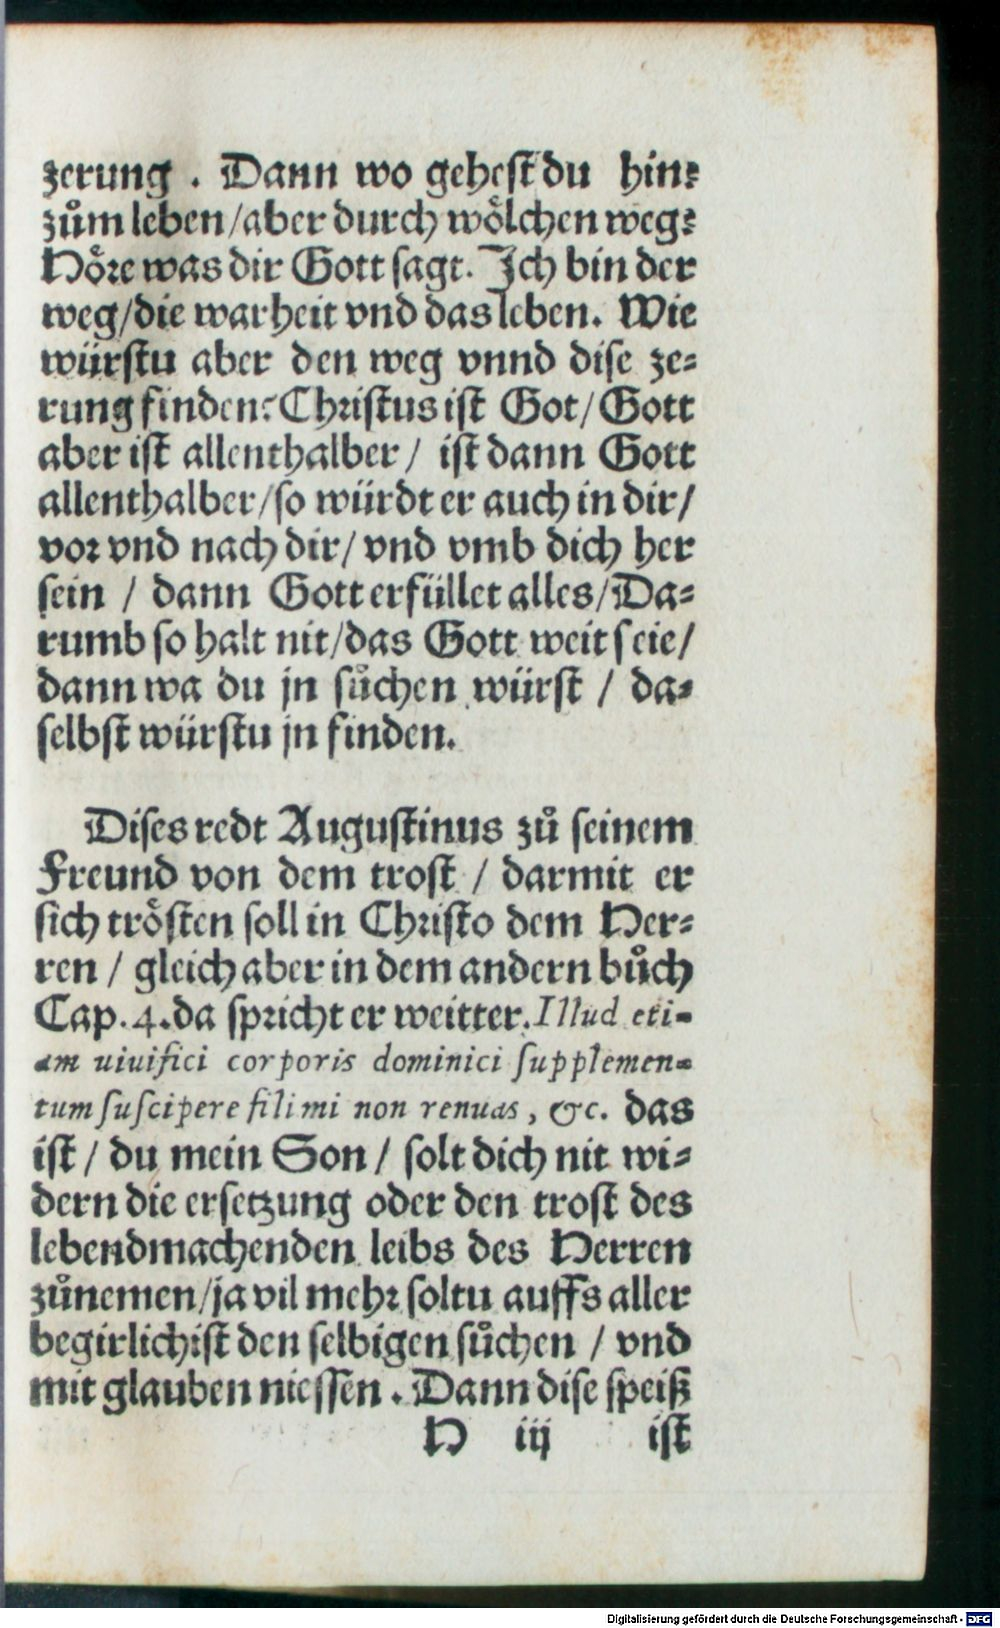 zerung . Dann wo gehest du hin?
zům leben/aber durch wölchen weg?
Höre was dir Gott sagt. Ich bin der
weg/die warheit vnd das leben. Wie
würstu aber den weg vnnd dise ze-
rung finden? Christus ist Got/Gott
aber ist allenthalber/ ist dann Gott
allenthalber/so würdt er auch in dir/
vor vnd nach dir/ vnd vmb dich her
sein / dann Gott erfüllet alles/Da-
rumb so halt nit/das Gott weit seie/
dann wa du jn sůchen würst / da-
selbst würstu jn finden.
Dises redt Augustinus zů seinem
Freund von dem trost / darmit er
sich trösten soll in Christo dem Her-
ren / gleich aber in dem andern bůch
Cap. 4. da spricht er weitter. Illud eti-
am uiuifici corporis dominici supplemen-
tum suscipere fili mi non renuas, &c. das
ist / du mein Son / solt dich nit wi-
dern die ersetzung oder den trost des
lebendmachenden leibs des Herren
zůnemen/ja vil mehr soltu auffs aller
begirlichist den selbigen sůchen / vnd
mit glauben niessen . Dann dise speiß
H iij ist
Digitalisierung gefördert durch die Deutsche Forschungsgemeinschaft - DFG